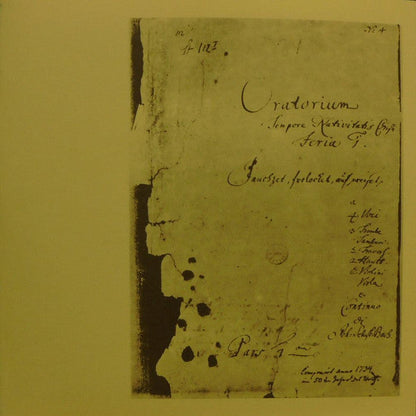 No 4
Oratorium
Tempore Nativitatis Christi
Feria 1.
Jauchzet, frolocket, auf preiset,
a
4. Voci
3 Trombe
Tamburi
2 Travers.
2 Hautb.
2 Violini
Viola
e
Continuo
di
Joh. Seb. Bach
Pars I
componirt anno 1734